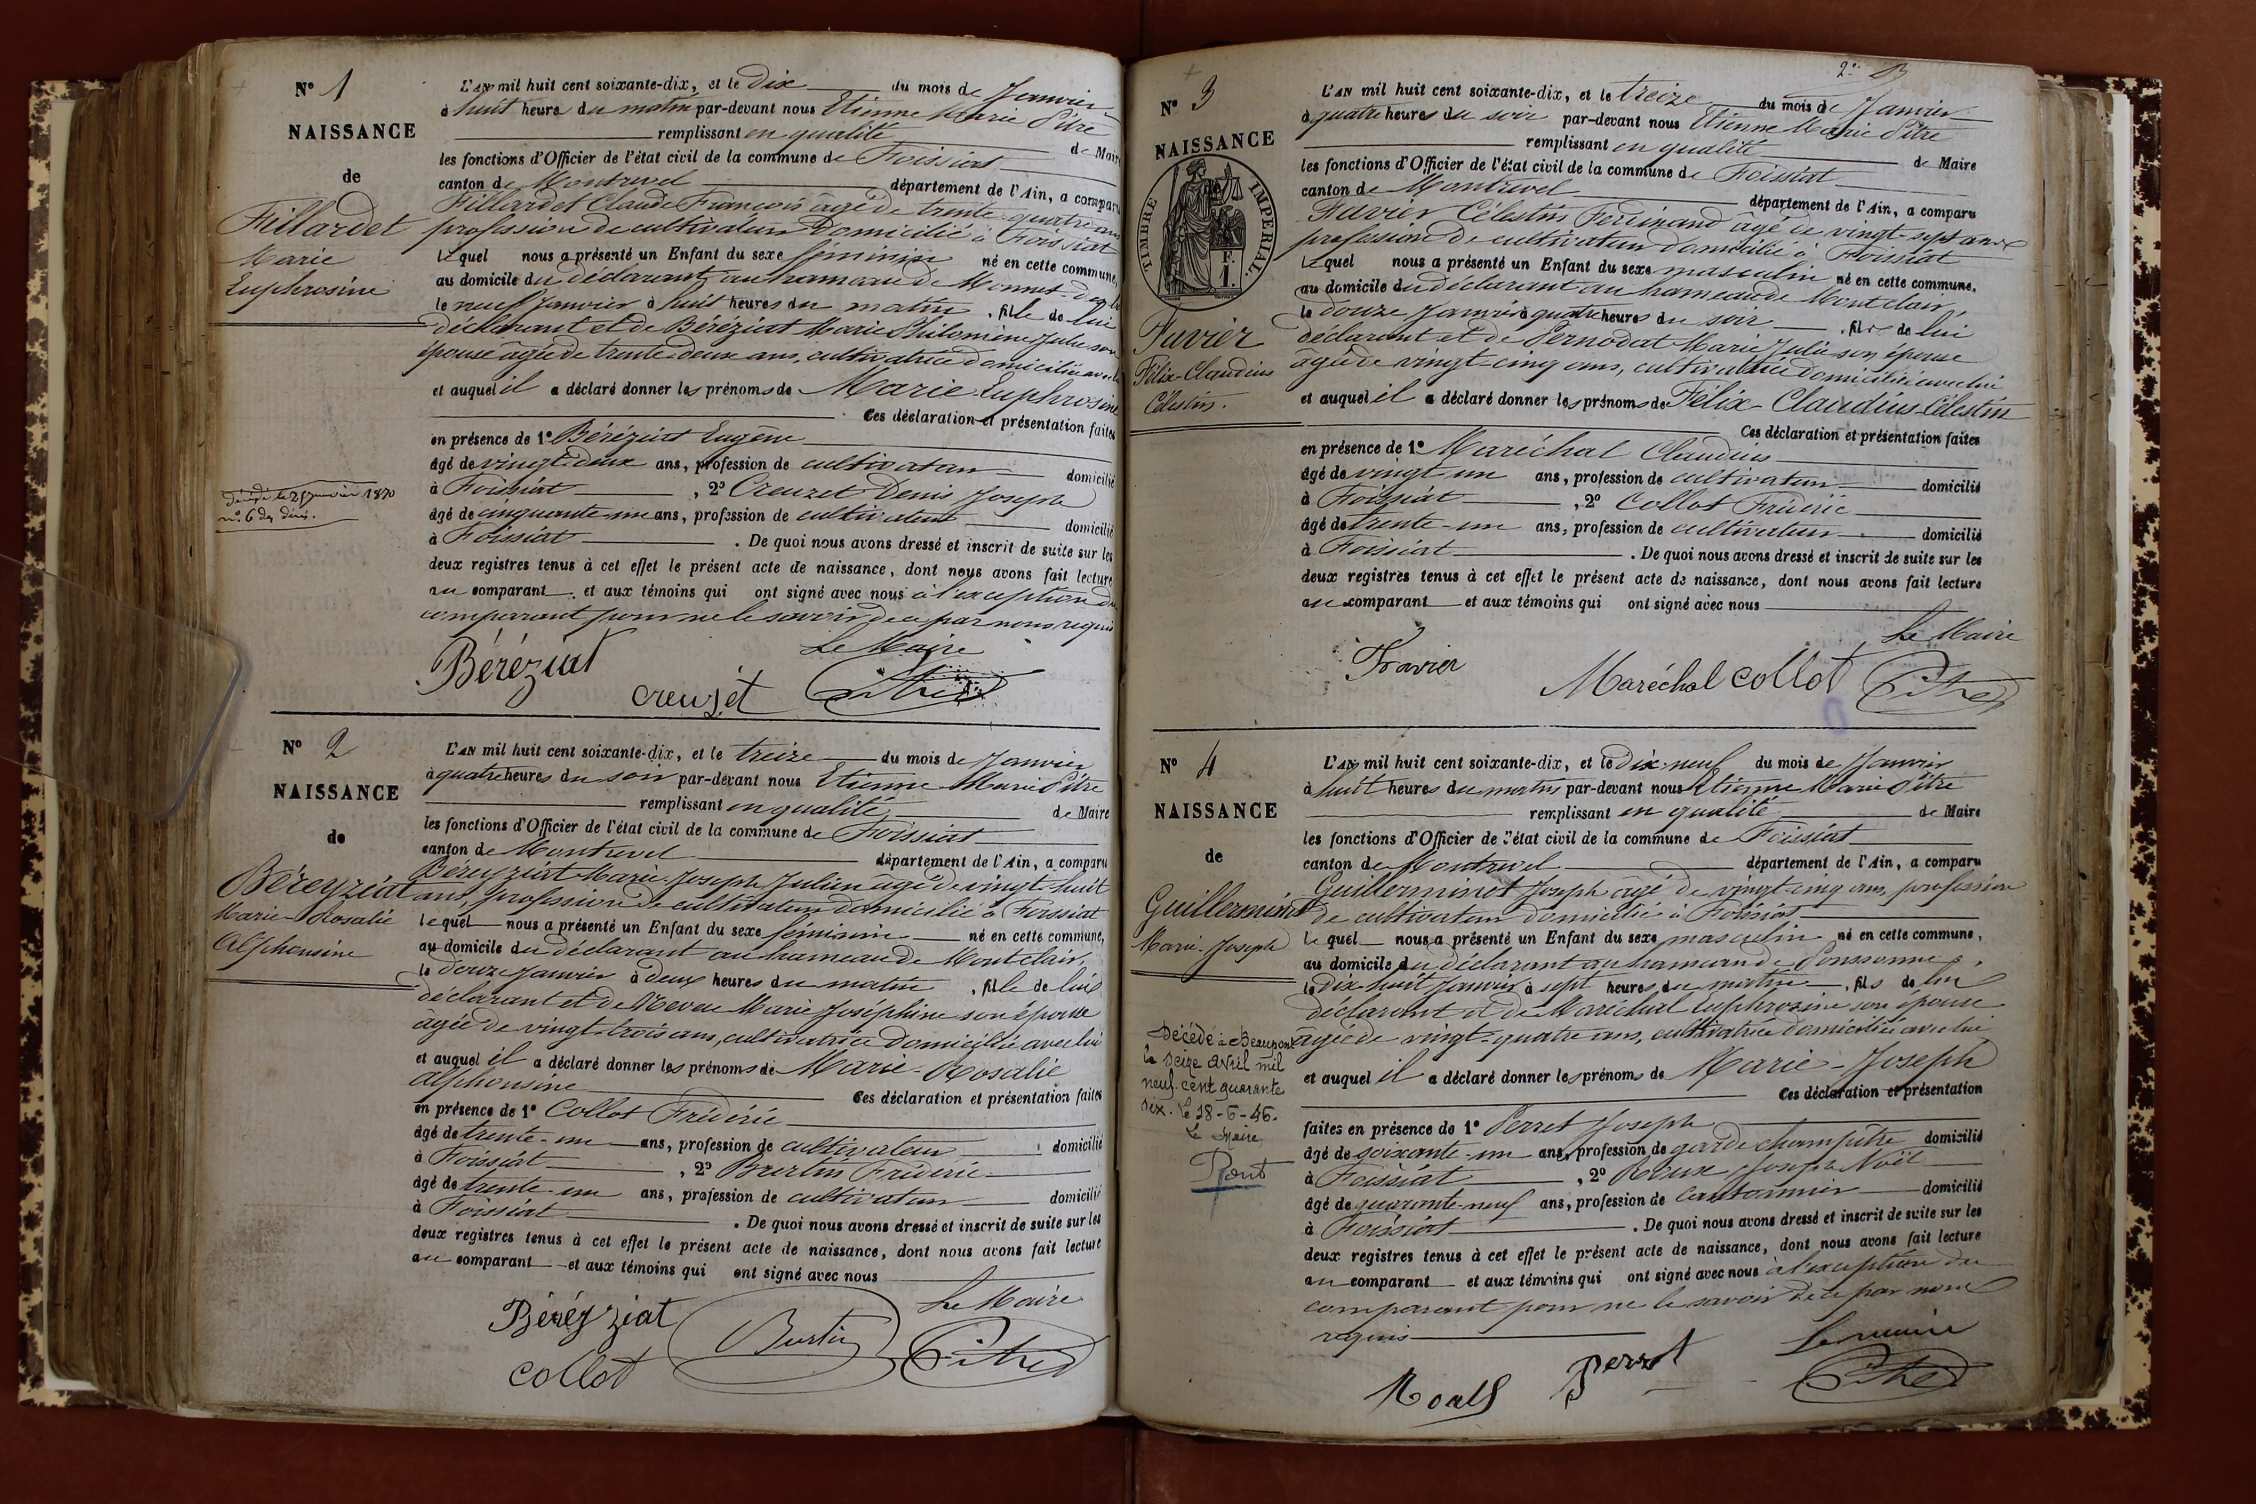 N° 1
NAISSANCE
de
Fillardet
Marie
Euphrosine
décédé le 25 janvier 1870
n° 6 des décès.
L'AN mil huit cent soixante-dix, et le Dix du mois de Janvier
à huit heure du matin par-devant nous Etienne Marie Pitre
remplissant en qualité de Maire
les fonctions d'Officier de l'état civil de la commune de Foissiat
canton de Montrevel département de l'Ain, a comparu
Fillardet Claude François âgé de trente-quatre ans
profession de cultivateur Domicilié à Foissiat
Lequel nous a présenté un Enfant du sexe féminin né en cette commune,
au domicile du déclarant, au hameau de
le neuf Janvier à huit heures du matin, fille de lui
déclarant et de Béréziat Marie Philomène Julie son
épouse âgée de trente-deux ans, cultivatrice domiciliée avec lui
et auquel il a déclaré donner les prénoms de Marie Euphrosine
Ces déclaration et présentation faites
en présence de 1° Béréziat Eugène
âgé de vingt-deux ans, profession de cultivateur domicilié
à Foissiat, 2° Creuzet Denis Joseph
âgé de cinquante-un ans, profession de cultivateur domicilié
à Foissiat. De quoi nous avons dressé et inscrit de suite sur les
deux registres tenus à cet effet le présent acte de naissance, dont nous avons fait lecture
au comparant et aux témoins qui ont signé avec nous à l'exception du
comparant pour ne le savoir de ce par nous requis
Le Maire
Béréziat
creuzet
Pitre
N° 2
NAISSANCE
de
Béreyziat
Marie-Rosalie
Alphonsine
L'AN mil huit cent soixante-dix, et le treize du mois de Janvier
à quatre heures du soir par-devant nous Etienne Marie Pitre
remplissant en qualité de Maire
les fonctions d'Officier de l'état civil de la commune de Foissiat
canton de Montrevel département de l'Ain, a comparu
Béreyziat Marie-Joseph Julien âgé de vingt-huit
ans, profession de cultivateur domicilié à Foissiat
Lequel nous a présenté un Enfant du sexe féminin né en cette commune,
au domicile du déclarant au hameau de Montclair,
le douze Janvier à deux heures du matin, fille de lui
déclarant et de Neveu Marie Joséphine son épouse
âgée de vingt-trois ans, cultivatrice domiciliée avec lui
et auquel il a déclaré donner les prénoms de Marie-Rosalie
Alphonsine Ces déclaration et présentation faites
en présence de 1° Collot Frédéric
âgé de trente-un ans, profession de cultivateur domicilié
à Foissiat, 2° Burtin Frédéric
âgé de trente-un ans, profession de cultivateur domicilié
à Foissiat. De quoi nous avons dressé et inscrit de suite sur les
deux registres tenus à cet effet le présent acte de naissance, dont nous avons fait lecture
au comparant et aux témoins qui ont signé avec nous
Le Maire
Béréyziat
Burtin
Pitre
collot
2e
N° 3
NAISSANCE
TIMBRE IMPERIAL.
F.
1.
Favier
Félix-Claudius
Célestin.
L'AN mil huit cent soixante-dix, et le treize du mois de Janvier
à quatre heures du soir par-devant nous Etienne Marie Pitre
remplissant en qualité de Maire
les fonctions d'Officier de l'état civil de la commune de Foissiat
canton de Montrevel département de l'Ain, a comparu
Favier Célestin Ferdinand âgé de vingt-sept ans
profession de cultivateur domicilié à Foissiat
Lequel nous a présenté un Enfant du sexe masculin né en cette commune,
au domicile du déclarant au hameau de Montclair,
le douze Janvier à quatre heures du soir, fils de lui
déclarant et de Pernodat Marie Julie son épouse
âgée de vingt-cinq ans, cultivatrice domiciliée avec lui
et auquel il a déclaré donner les prénoms de Félix-Claudius Célestin
Ces déclaration et présentation faites
en présence de 1° Maréchal Claudius
âgé de vingt-un ans, profession de cultivateur domicilié
à Foissiat, 2° Collot Frédéric
âgé de trente-un ans, profession de cultivateur domicilié
à Foissiat. De quoi nous avons dressé et inscrit de suite sur les
deux registres tenus à cet effet le présent acte de naissance, dont nous avons fait lecture
au comparant et aux témoins qui ont signé avec nous
Le Maire
Favier
Maréchal collot Pitre
N° 4
NAISSANCE
de
Guillerminet
Marie-Joseph
Décédé à Beaupont
le seize avril mil
neuf cent quarante
six. Le 18-6-46.
Le Maire
L'AN mil huit cent soixante-dix, et le Dix-neuf du mois de Janvier
à huit heures du matin par-devant nous Etienne Marie Pitre
remplissant en qualité de Maire
les fonctions d'Officier de l'état civil de la commune de Foissiat
canton de Montrevel département de l'Ain, a comparu
Guillerminet Joseph âgé de vingt-cinq ans, profession
de cultivateur domicilié à Foissiat
Lequel nous a présenté un Enfant du sexe masculin né en cette commune,
au domicile du déclarant au hameau de
le dix-huit Janvier à sept heures du matin, fils de lui
déclarant et de Maréchal Euphrosine son épouse
âgée de vingt-quatre ans, cultivatrice domiciliée avec lui
et auquel il a déclaré donner les prénoms de Marie-Joseph
Ces déclaration et présentation
faites en présence de 1° Perret Joseph
âgé de soixante-un ans, profession de garde champêtre domicilié
à Foissiat, 2° Joseph Noël
âgé de quarante-neuf ans, profession de Cantonnier domicilié
à Foissiat. De quoi nous avons dressé et inscrit de suite sur les
deux registres tenus à cet effet le présent acte de naissance, dont nous avons fait lecture
au comparant et aux témoins qui ont signé avec nous à l'exception du
comparant pour ne le savoir de ce par nous
requis
Le maire
perret
Pitre